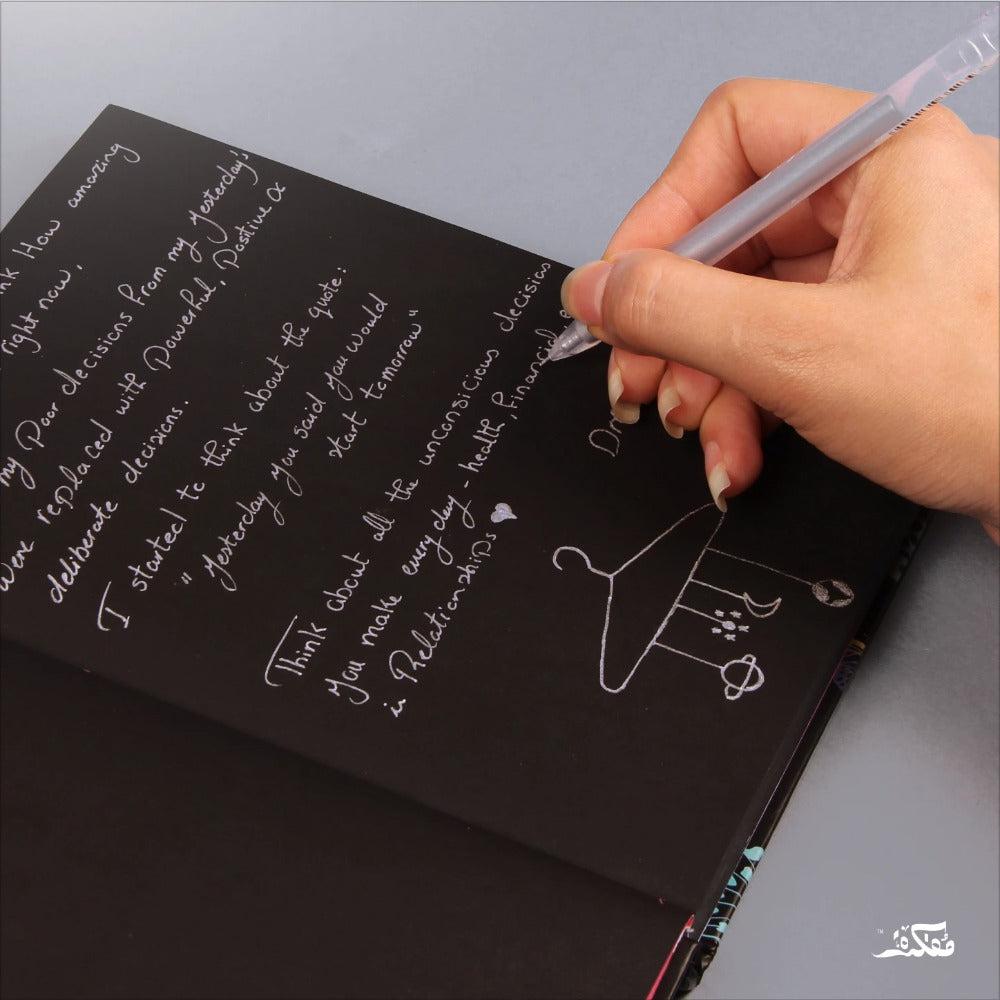 How amazing
right now.
my Poor decisions from my yesterday's
were replaced with Powerful, Positive &
deliberate decisions.
I started to think about the quote:
" Yesterday you said you would
start tomorrow"
Think about all the unconsicious decisions
you make everyday - health, financial
in Relationships
مفكرة
TM